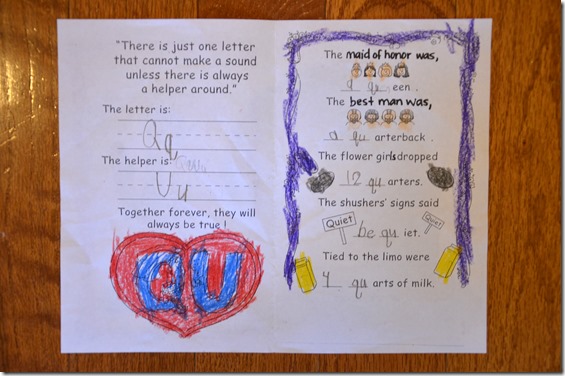 “There is just one letter
that cannot make a sound
unless there is always
a helper around.”
The letter is:
Qq
The helper is:
Uu
Together forever, they will
always be true!
QU
The maid of honor was,
a qu een.
The best man was,
a qu arterback.
The flower girls dropped
12 qu arters.
The shushers' signs said
Quiet
be qu iet.
Quiet
Tied to the limo were
4 qu arts of milk.